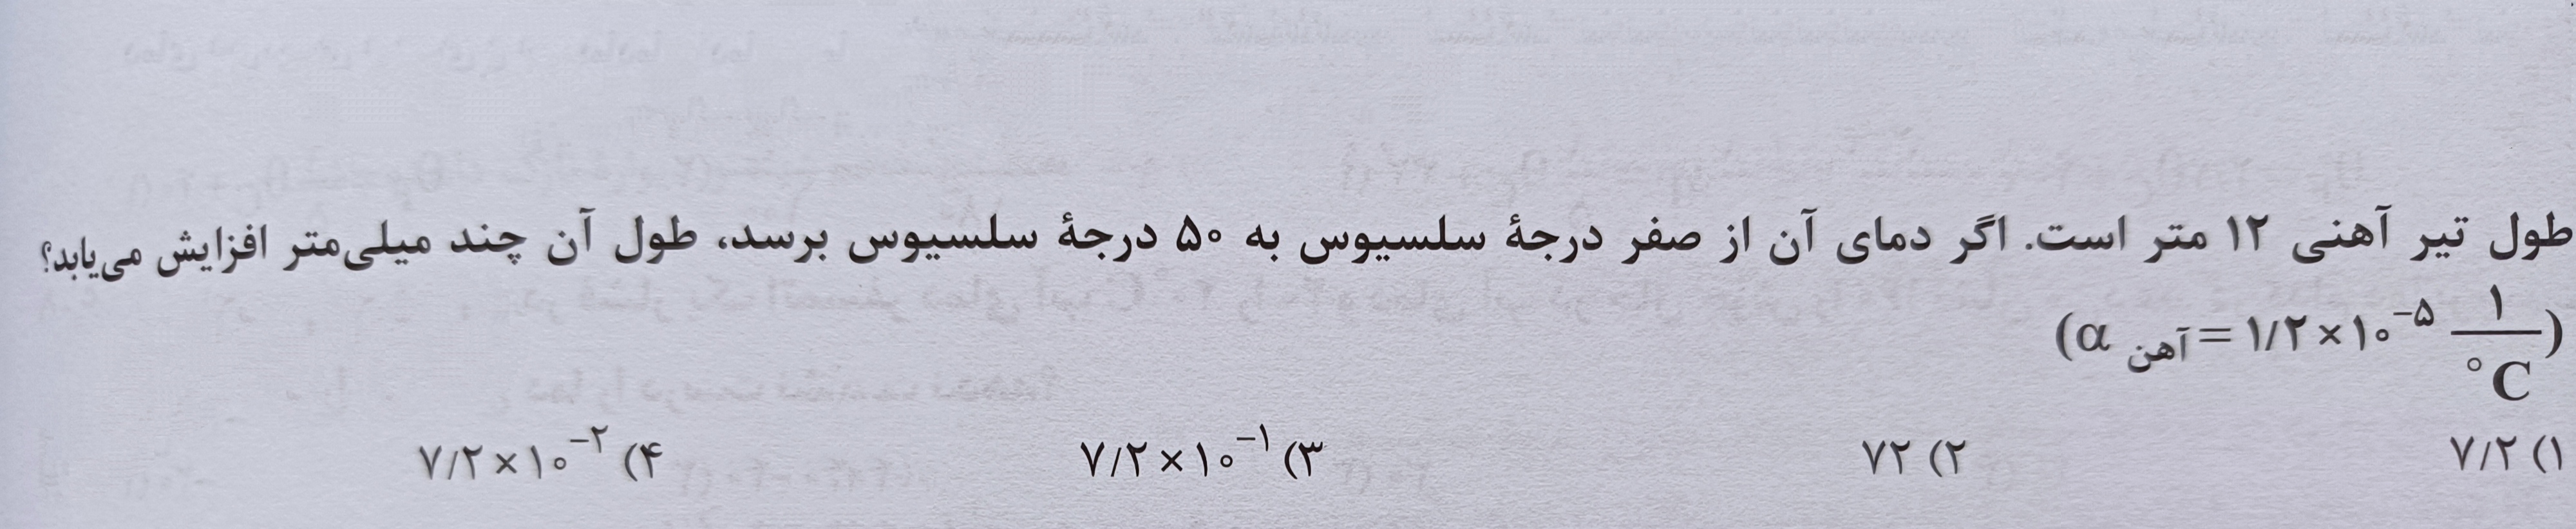 طول تیر آهنی ۱۲ متر است. اگر دمای آن از صفر درجهٔ سلسیوس به ۵۰ درجهٔ سلسیوس برسد، طول آن چند میلی‌متر افزایش می‌یابد؟
(α آهن = ۱/۲×۱۰⁻⁵ ۱/°C)
۱) ۷/۲ ۲) ۷۲ ۳) ۷/۲×۱۰⁻¹ ۴) ۷/۲×۱۰⁻²